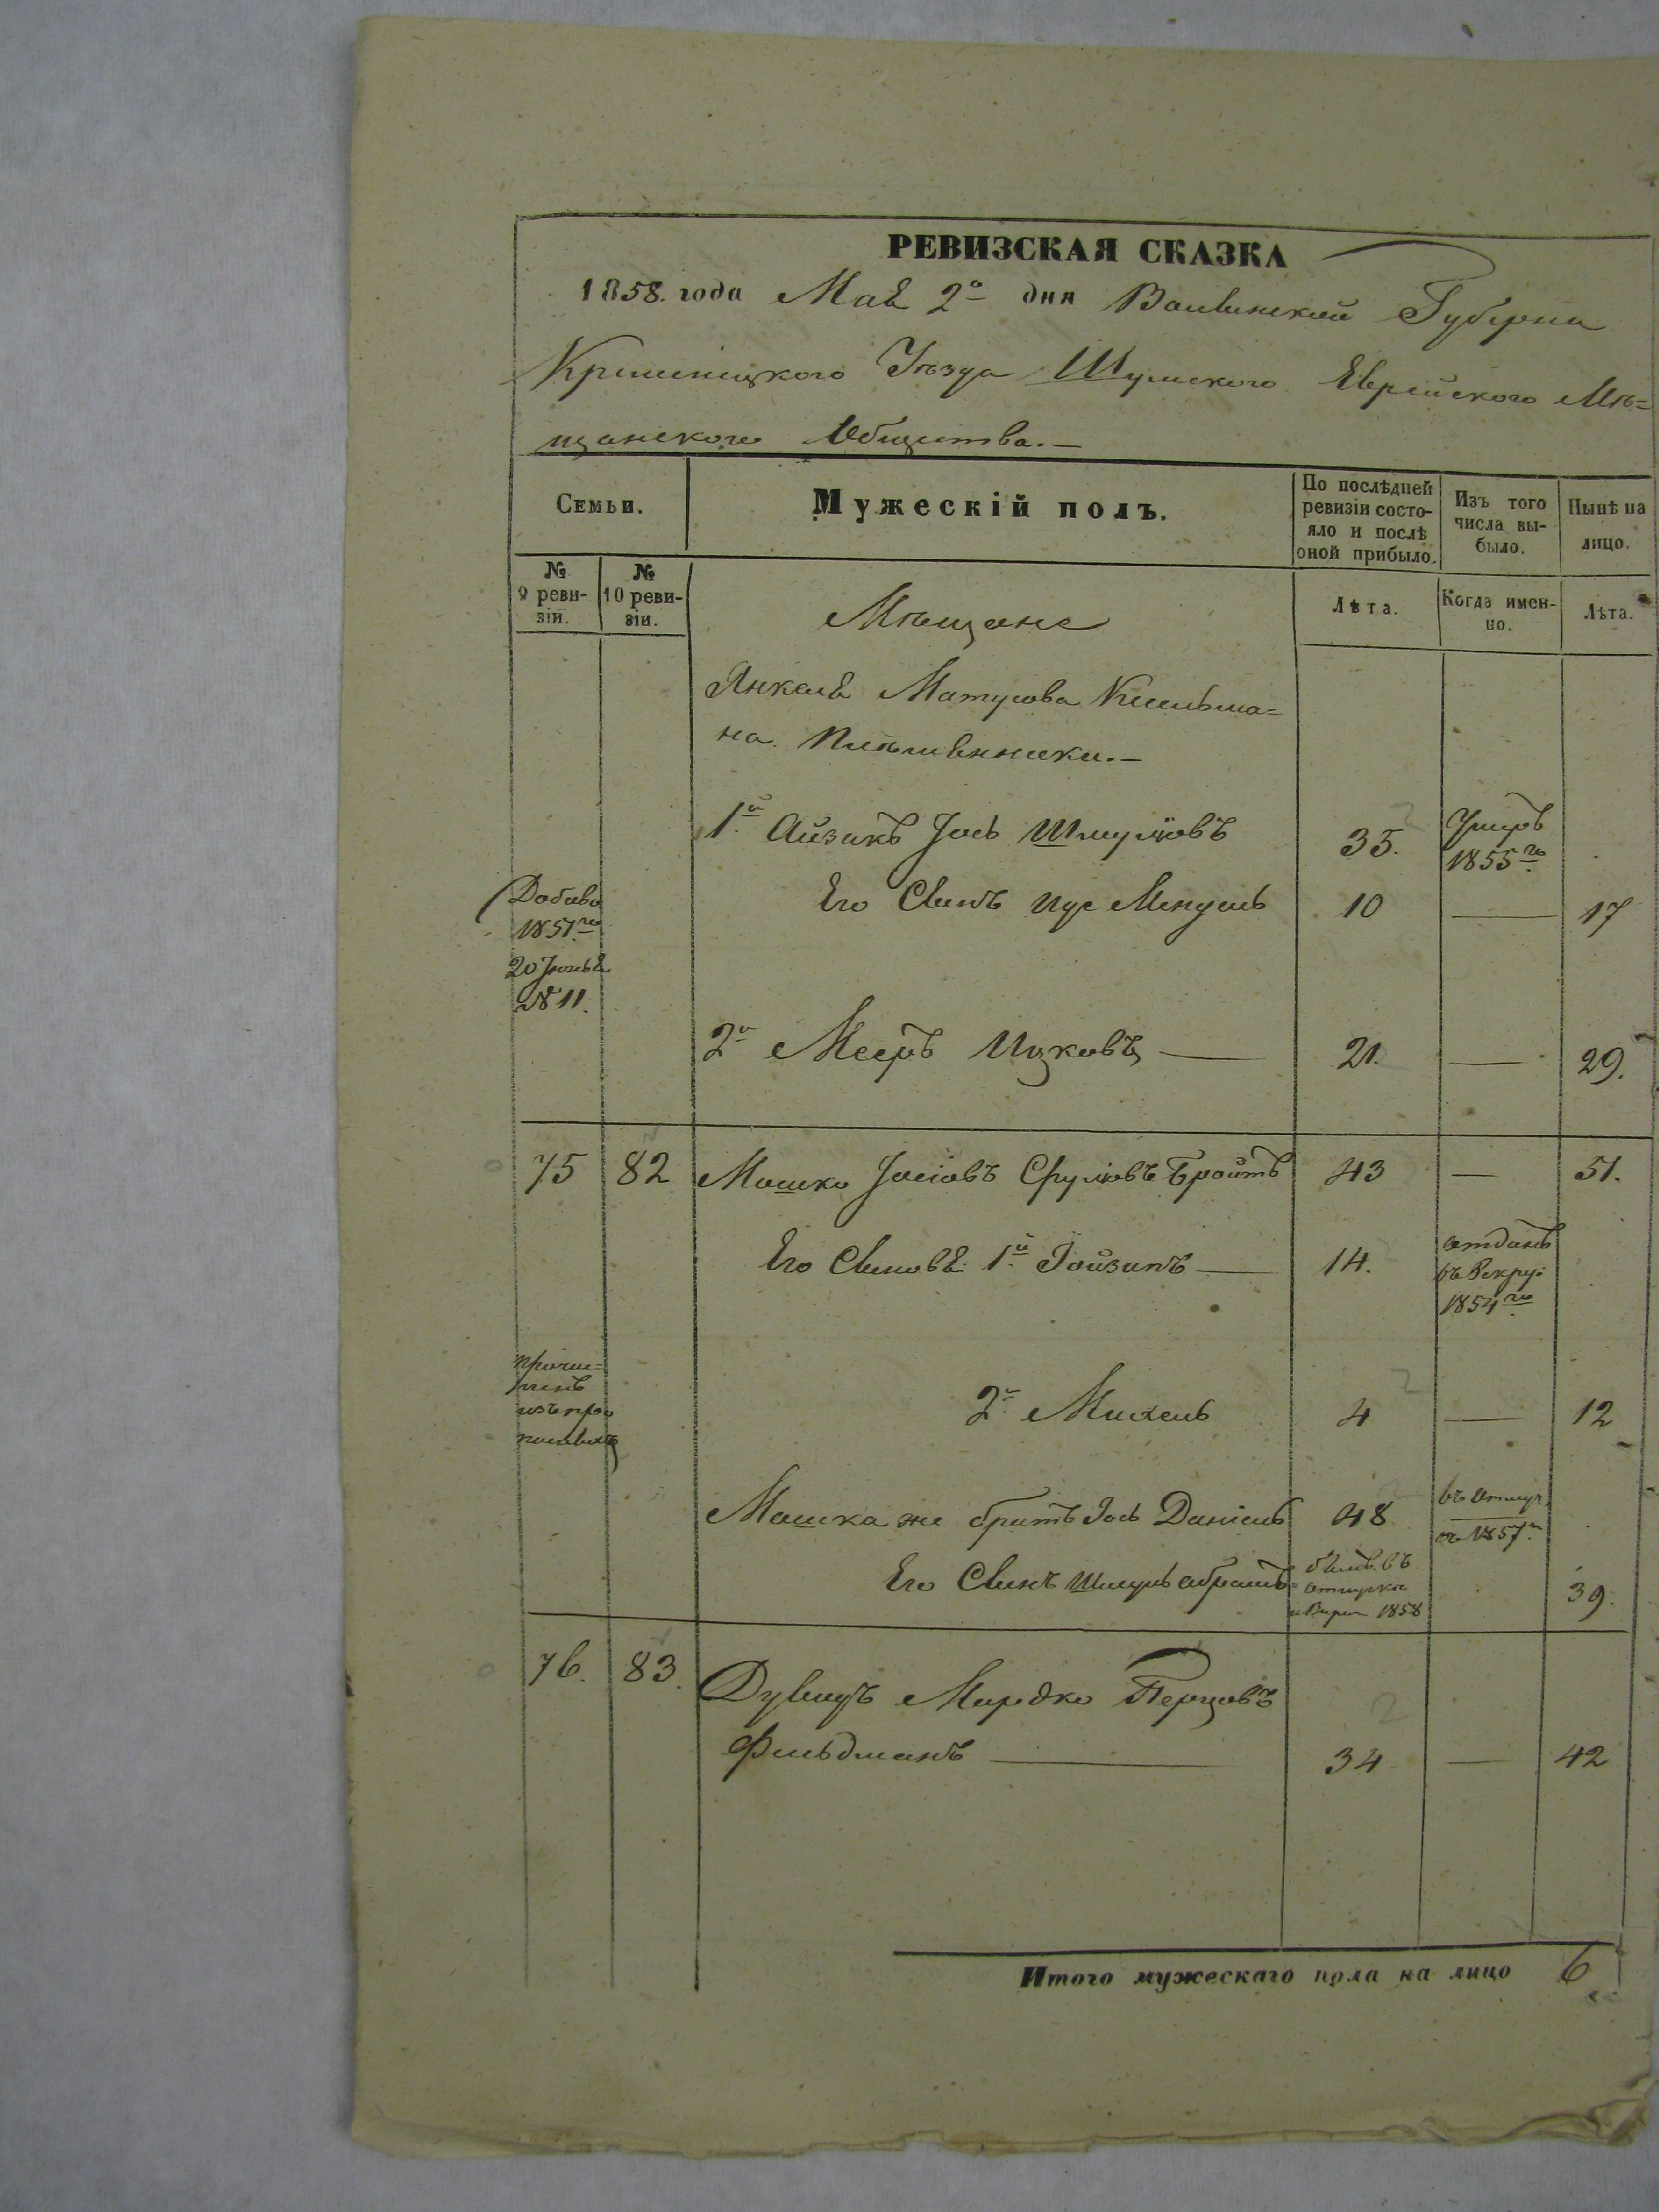 РЕВИЗСКАЯ СКАЗКА
1858. года Маѣ 2го дня Волынской Губерни
Кременецкого Уѣзда Шумского Еврейского Мѣ=
щанского Общества.—
Семьи.
Мужескій полъ.
По послѣдней ревизіи состо-яло и послѣ оной прибыло.
Изъ того числа вы-было.
Нынѣ на лицо.
№ 9 реви-зіи.
№ 10 реви-зіи.
Мѣщане
Лѣта.
Когда имен-но.
Лѣта.
Янкеля Матусова Кисельма=
на Племенники.—
1й Айзикъ Іось Шмулiовъ 35. Умеръ 1855го
Его Сынъ 10 — 17
Добавоч
1851го
20 Іюня
№ 11.
2й Мееръ Ицковъ — 21. — 29.
75 82 Мошко Іосіовъ Срулiовъ Бройтъ 43 — 51.
Его Сыновья 1й — 14. отданъ въ Рекру: 1854го
причис=
ленъ
изъ про
писныхъ
2й Михель 4 — 12
Мошка же братъ Іось Даніель 48 въ отлуч. съ 1857го
Его Сынъ Шмуль Абрамъ былъ въ отлучкѣ 1858 39.
76. 83. Дувидъ Мордко Перцовъ
Фельдманъ — 34 — 42
Итого мужескаго пола на лицо 6